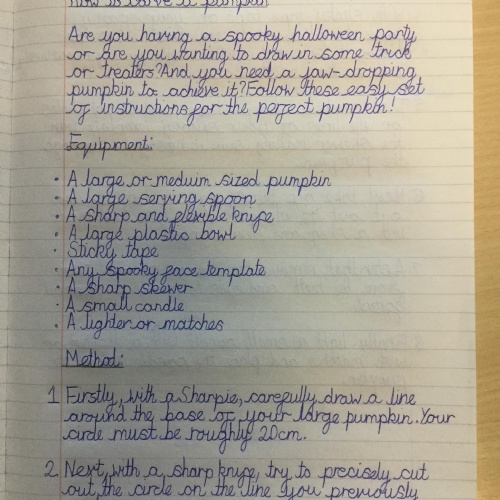 How to carve a pumpkin
Are you having a spooky halloween party
or are you wanting to draw in some trick
or treaters? And you need a jaw-dropping
pumpkin to achieve it? Follow these easy set
of instructions for the perfect pumpkin!
Equipment:
· A large or meduim sized pumpkin
· A large serving spoon
· A sharp and flexible knife
· A large plastic bowl
· Sticky tape
· Any spooky face template
· A sharp skewer
· A small candle
· A lighter or matches
Method:
1 Firstly, with a Sharpie, carefully draw a line
around the base of your large pumpkin. Your
circle must be roughly 20cm.
2 Next, with a sharp knife, try to precisely cut
out the circle on the line you previously